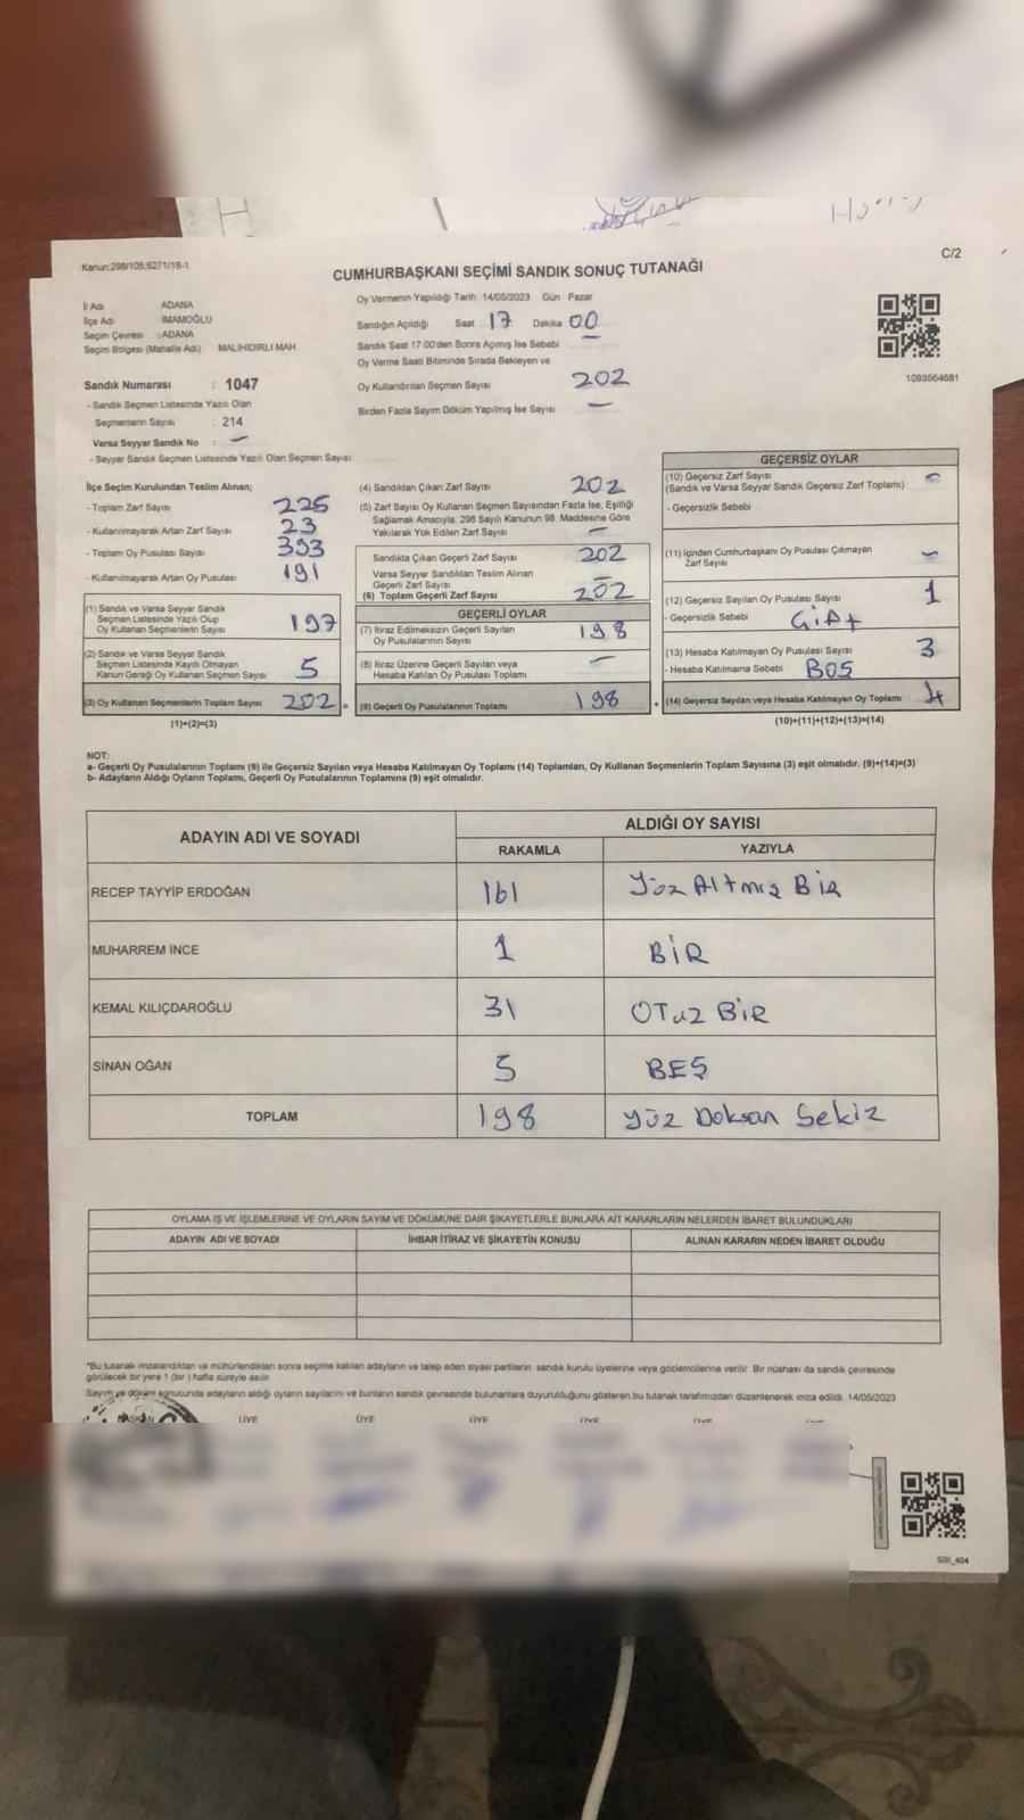 Kanun:298/105;6271/18-1
C/2
CUMHURBAŞKANI SEÇİMİ SANDIK SONUÇ TUTANAĞI
İl Adı ADANA
İlçe Adı İMAMOĞLU
Seçim Çevresi :ADANA
Seçim Bölgesi (Mahalle Adı) MALIHIDIRLI MAH
Sandık Numarası : 1047
- Sandık Seçmen Listesinde Yazılı Olan
Seçmenlerin Sayısı : 214
Varsa Seyyar Sandık No : –
- Seyyar Sandık Seçmen Listesinde Yazılı Olan Seçmen Sayısı:
Oy Vermenin Yapıldığı Tarih: 14/05/2023 Gün: Pazar
Sandığın Açıldığı Saat : 17 Dakika 00
Sandık Saat 17.00'den Sonra Açılmış İse Sebebi –
Oy Verme Saati Bitiminde Sırada Bekleyen ve
Oy Kullandırılan Seçmen Sayısı 202
Birden Fazla Sayım Döküm Yapılmış İse Sayısı –
1093564681
İlçe Seçim Kurulundan Teslim Alınan;
- Toplam Zarf Sayısı 225
- Kullanılmayarak Artan Zarf Sayısı 23
- Toplam Oy Pusulası Sayısı 393
- Kullanılmayarak Artan Oy Pusulası 191
(1) Sandık ve Varsa Seyyar Sandık
Seçmen Listesinde Yazılı Olup
Oy Kullanan Seçmenlerin Sayısı 197
(2) Sandık ve Varsa Seyyar Sandık
Seçmen Listesinde Kayıtlı Olmayan
Kanun Gereği Oy Kullanan Seçmen Sayısı 5
(3) Oy Kullanan Seçmenlerin Toplam Sayısı 202
(1)+(2)=(3)
(4) Sandıktan Çıkan Zarf Sayısı 202
(5) Zarf Sayısı Oy Kullanan Seçmen Sayısından Fazla İse, Eşitliği
Sağlamak Amacıyla; 298 Sayılı Kanunun 98. Maddesine Göre
Yakılarak Yok Edilen Zarf Sayısı –
Sandıkta Çıkan Geçerli Zarf Sayısı 202
Varsa Seyyar Sandıktan Teslim Alınan
Geçerli Zarf Sayısı –
(6) Toplam Geçerli Zarf Sayısı 202
GEÇERLİ OYLAR
(7) İtiraz Edilmeksizin Geçerli Sayılan
Oy Pusulalarının Sayısı 198
(8) İtiraz Üzerine Geçerli Sayılan veya
Hesaba Katılan Oy Pusulası Toplamı –
(9) Geçerli Oy Pusulalarının Toplamı 198
GEÇERSİZ OYLAR
(10) Geçersiz Zarf Sayısı
(Sandık ve Varsa Seyyar Sandık Geçersiz Zarf Toplamı)
- Geçersizlik Sebebi
(11) İçinden Cumhurbaşkanı Oy Pusulası Çıkmayan
Zarf Sayısı –
(12) Geçersiz Sayılan Oy Pusulası Sayısı 1
- Geçersizlik Sebebi Çift
(13) Hesaba Katılmayan Oy Pusulası Sayısı 3
- Hesaba Katılmama Sebebi BOŞ
(14) Geçersiz Sayılan veya Hesaba Katılmayan Oy Toplamı 4
(10)+(11)+(12)+(13)=(14)
NOT:
a- Geçerli Oy Pusulalarının Toplamı (9) ile Geçersiz Sayılan veya Hesaba Katılmayan Oy Toplamı (14) Toplamları, Oy Kullanan Seçmenlerin Toplam Sayısına (3) eşit olmalıdır. (9)+(14)=(3)
b- Adayların Aldığı Oyların Toplamı, Geçerli Oy Pusulalarının Toplamına (9) eşit olmalıdır.
ADAYIN ADI VE SOYADI ALDIĞI OY SAYISI
RAKAMLA YAZIYLA
RECEP TAYYİP ERDOĞAN 161 Yüz Altmış Bir
MUHARREM İNCE 1 BİR
KEMAL KILIÇDAROĞLU 31 OTuz BİR
SİNAN OĞAN 5 BEŞ
TOPLAM 198 Yüz Doksan Sekiz
OYLAMA İŞ VE İŞLEMLERİNE VE OYLARIN SAYIM VE DÖKÜMÜNE DAİR ŞİKAYETLERLE BUNLARA AİT KARARLARIN NELERDEN İBARET BULUNDUKLARI
ADAYIN ADI VE SOYADI İHBAR İTİRAZ VE ŞİKAYETİN KONUSU ALINAN KARARIN NEDEN İBARET OLDUĞU
*Bu tutanak imzalandıktan ve mühürlendikten sonra seçime katılan adayların ve talep eden siyasi partilerin sandık kurulu üyelerine veya gözlemcilerine verilir. Bir nüshası da sandık çevresinde
görülecek bir yere 1 (bir) hafta süreyle asılır.
Sayım ve döküm sonucunda adayların aldığı oyların sayılarını ve bunların sandık çevresinde bulunanlara duyurulduğunu gösteren bu tutanak tarafımızdan düzenlenerek imza edildi. 14/05/2023
BAŞKAN ÜYE ÜYE ÜYE ÜYE ÜYE